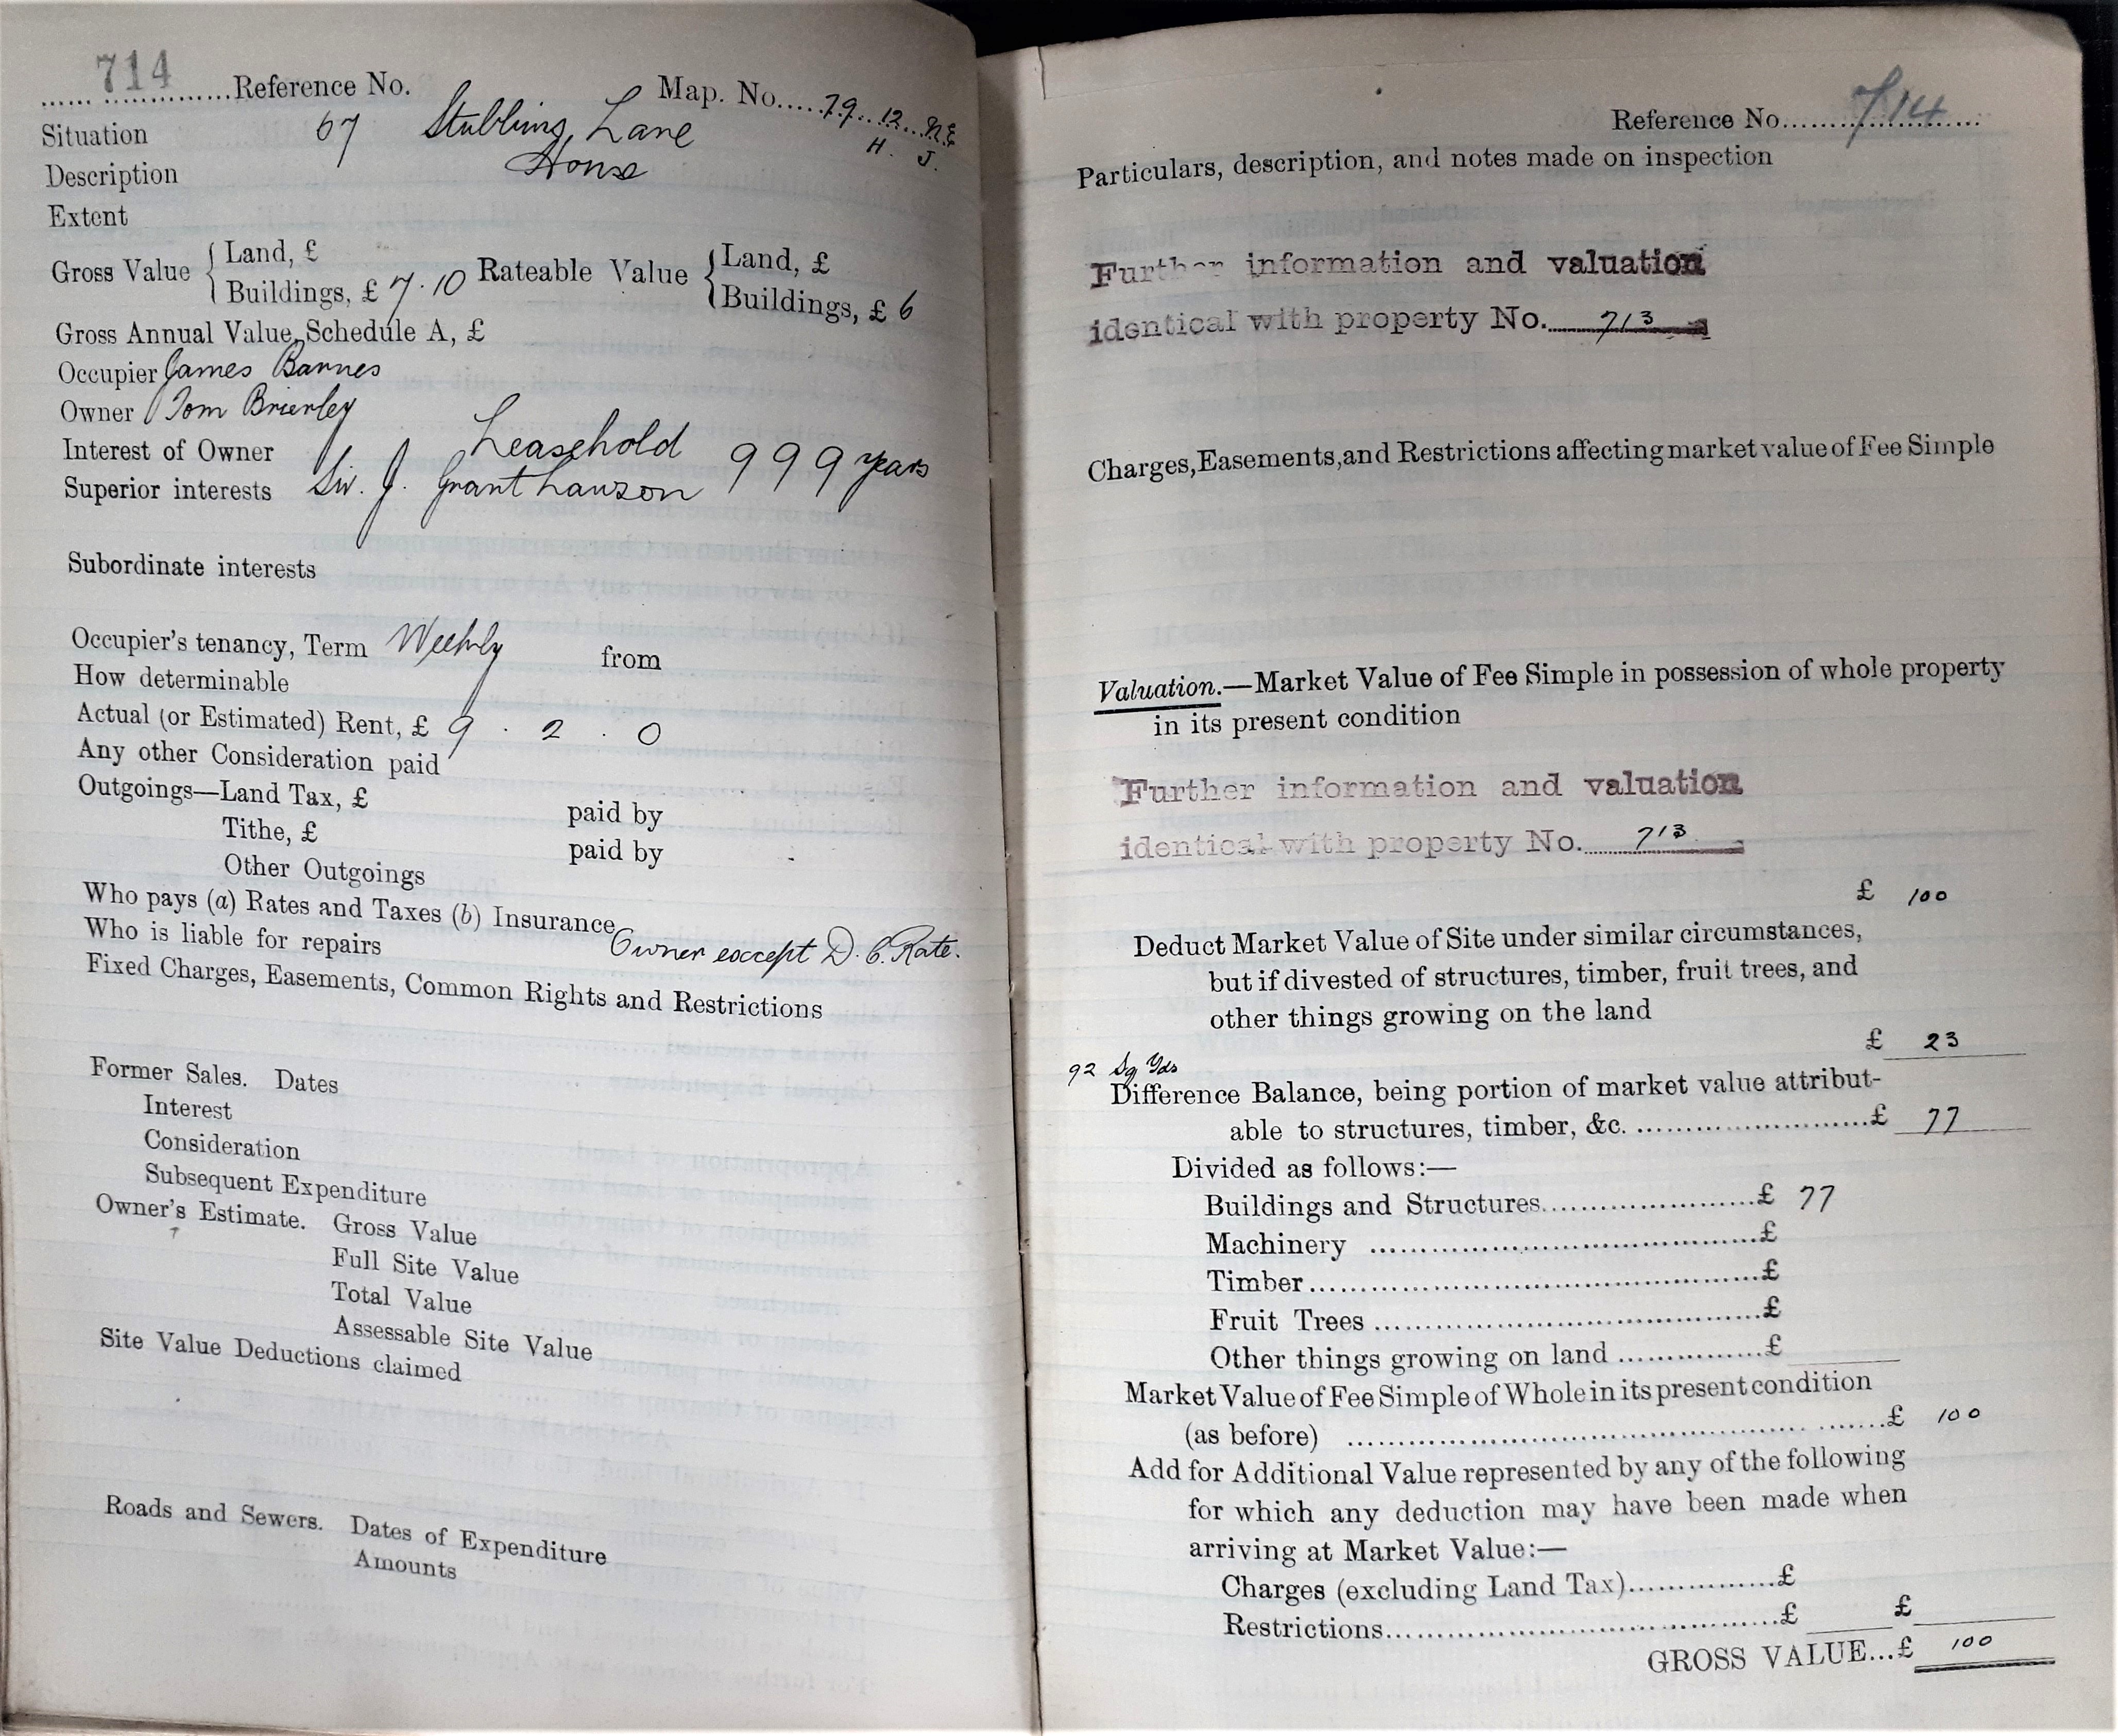 714
Reference No. Map. No. 79. 12. N.E
H. J.
Situation 67 Stubbins Lane
Description House
Extent
Gross Value { Land, £ Rateable Value { Land, £
Buildings, £ 7.10 Buildings, £ 6
Gross Annual Value, Schedule A, £
Occupier James Barnes
Owner Tom Brierley
Interest of Owner Leasehold 999 years
Superior interests Sir. J. Grant Lawson
Subordinate interests
Occupier's tenancy, Term Weekly from
How determinable
Actual (or Estimated) Rent, £ 9 . 2 . 0
Any other Consideration paid
Outgoings—Land Tax, £ paid by
Tithe, £ paid by
Other Outgoings
Who pays (a) Rates and Taxes (b) Insurance
Who is liable for repairs Owner except D. C. Rate.
Fixed Charges, Easements, Common Rights and Restrictions
Former Sales. Dates
Interest
Consideration
Subsequent Expenditure
Owner's Estimate. Gross Value
Full Site Value
Total Value
Assessable Site Value
Site Value Deductions claimed
Roads and Sewers. Dates of Expenditure
Amounts
Reference No. 714
Particulars, description, and notes made on inspection
Further information and valuation
identical with property No. 713
Charges, Easements, and Restrictions affecting market value of Fee Simple
Valuation.—Market Value of Fee Simple in possession of whole property
in its present condition
Further information and valuation
identical with property No. 713
£ 100
Deduct Market Value of Site under similar circumstances,
but if divested of structures, timber, fruit trees, and
other things growing on the land
£ 23
92 Sq Yds
Difference Balance, being portion of market value attribut-
able to structures, timber, &c. £ 77
Divided as follows:—
Buildings and Structures £ 77
Machinery £
Timber £
Fruit Trees £
Other things growing on land £
Market Value of Fee Simple of Whole in its present condition
(as before) £ 100
Add for Additional Value represented by any of the following
for which any deduction may have been made when
arriving at Market Value:—
Charges (excluding Land Tax) £
Restrictions £ £
GROSS VALUE...£ 100